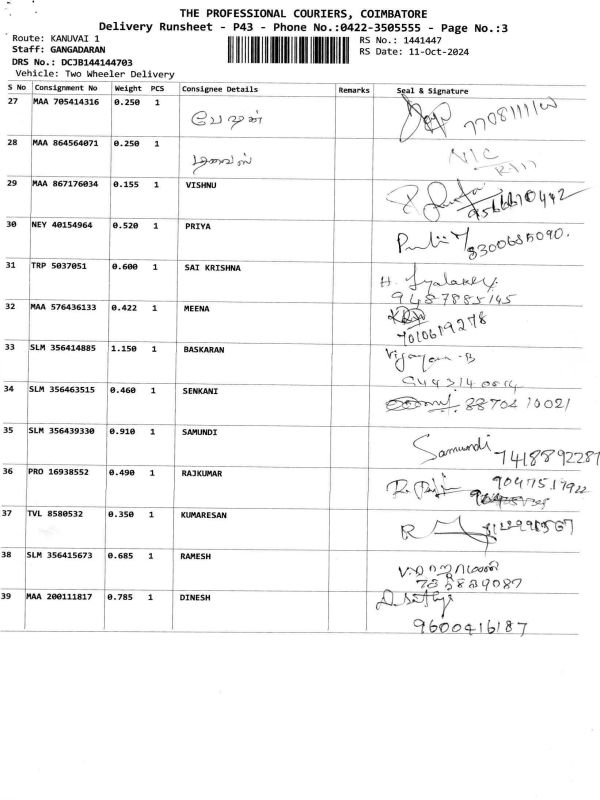 THE PROFESSIONAL COURIERS, COIMBATORE
Delivery Runsheet - P43 - Phone No.:0422-3505555 - Page No.:3
Route: KANUVAI 1
RS No.: 1441447
Staff: GANGADARAN
RS Date: 11-Oct-2024
DRS No.: DCJB144144703
Vehicle: Two Wheeler Delivery
S No Consignment No Weight PCS Consignee Details Remarks Seal & Signature
27 MAA 705414316 0.250 1
28 MAA 864564071 0.250 1
29 MAA 867176034 0.155 1 VISHNU
30 NEY 40154964 0.520 1 PRIYA
8300685090.
31 TRP 5037051 0.600 1 SAI KRISHNA
9487885145
32 MAA 576436133 0.422 1 MEENA
7010619278
33 SLM 356414885 1.150 1 BASKARAN
34 SLM 356463515 0.460 1 SENKANI
35 SLM 356439330 0.910 1 SAMUNDI Samundi
7418892287
36 PRO 16938552 0.490 1 RAJKUMAR
9047517922
37 TVL 8580532 0.350 1 KUMARESAN
38 SLM 356415673 0.685 1 RAMESH
39 MAA 200111817 0.785 1 DINESH
9600416187